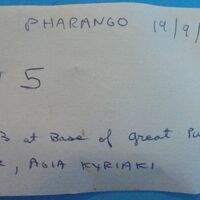 PHARANGO 19/9/
5
B at Base of Great
, AGIA KYRIAKI